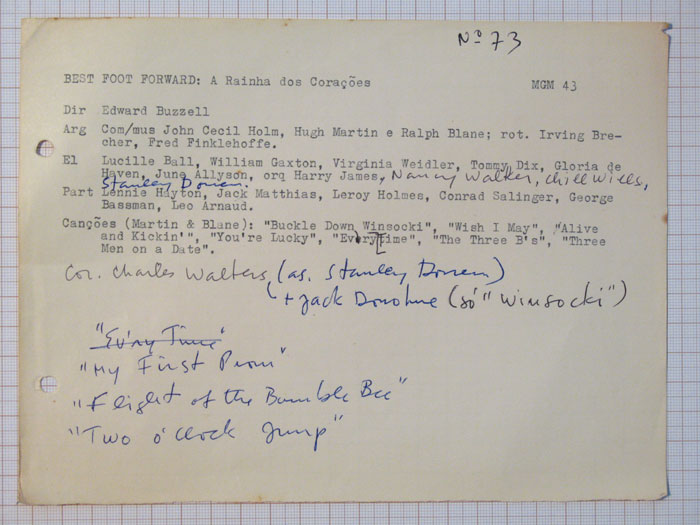 Nº 73
BEST FOOT FORWARD: A Rainha dos Corações MGM 43
Dir Edward Buzzell
Arg Com/mus John Cecil Holm, Hugh Martin e Ralph Blane; rot. Irving Bre-
cher, Fred Finklehoffe.
El Lucille Ball, William Gaxton, Virginia Weidler, Tommy Dix, Gloria de
Haven, June Allyson, orq Harry James, Nancy Walker, Chill Wills,
Stanley Donen.
Part Lennie Hayton, Jack Matthias, Leroy Holmes, Conrad Salinger, George
Bassman, Leo Arnaud.
Canções (Martin & Blane): "Buckle Down Winsocki", "Wish I May", "Alive
and Kickin'", "You're Lucky", "Every Time", "The Three B's", "Three
Men on a Date".
Cor. Charles Walters, (as. Stanley Donen)
+ Jack Donohue (só "Winsocki")
"Ev'ry Time"
"My First Prom"
"Flight of the Bumble Bee"
"Two o'Clock Jump"